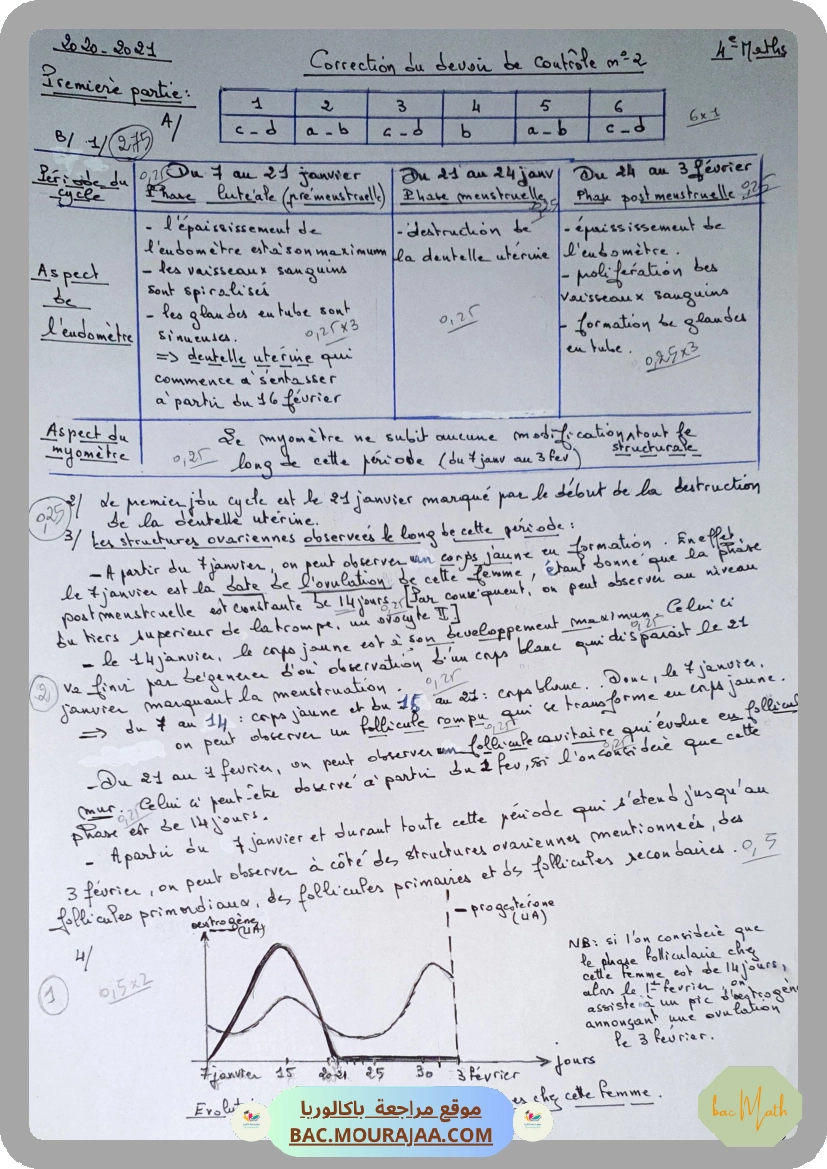 2020-2021
Correction du devoir de contrôle n°2
4e Maths
Première partie:
A/
1 2 3 4 5 6
c-d a-b c-d b a-b c-d
6x1
B/ 1/ 2,75
Période du cycle
0,25 Du 7 au 21 janvier
Phase lutéale (prémenstruelle)
Du 21 au 24 janv
Phase menstruelle
0,25
Du 24 au 3 février
Phase postmenstruelle 0,25
Aspect
de
l'endomètre
- l'épaississement de
l'endomètre est à son maximum
- les vaisseaux sanguins
sont spiralisés
- les glandes en tube sont
sinueuses.
0,25x3
=> dentelle utérine qui
commence à s'entasser
à partir du 16 février
- destruction de
la dentelle utérine
0,25
- épaississement de
l'endomètre.
- prolifération des
vaisseaux sanguins
- formation de glandes
en tube.
0,25x3
Aspect du
myomètre
Le myomètre ne subit aucune modification structurale tout le
long de cette période (du 7 janv au 3 fev)
0,25
0,25
2/ Le premier jou cycle est le 21 janvier marqué par le début de la destruction
de la dentelle utérine.
3/ Les structures ovariennes observées le long de cette période:
- A partir du 7 janvier, on peut observer un corps jaune en formation. En effet
le 7 janvier est la date de l'ovulation de cette femme, étant donné que la phase
postmenstruelle est constante de 14 jours. [Par conséquent, on peut observer au niveau
du tiers supérieur de la trompe, un ovocyte II]
0,25
- le 14 janvier, le corps jaune est à son developpement maximum. Celui ci
0,25
va finir par dégénérer d'où observation d'un corps blanc qui disparaît le 21
janvier marquant la menstruation.
0,25
2
=> du 7 au 14 : corps jaune et du 15 au 21 : corps blanc. Donc, le 7 janvier,
on peut observer un follicule rompu qui se transforme en corps jaune.
0,25
- Du 21 au 1 février, on peut observer un follicule cavitaire qui évolue en follicul
0,25
mur. Celui ci peut-être observé à partir du 1 fev, si l'on considère que cette
0,25
phase est de 14 jours.
- A partir du 7 janvier et durant toute cette période qui s'étend jusqu'au
3 février, on peut observer à côté des structures ovariennes mentionnées, des
follicules primordiaux, des follicules primaires et des follicules secondaires. 0,5
4/
1
0,5x2
oestrogène
(UA)
progestérone
(UA)
NB: si l'on considère que
la phase folliculaire chez
cette femme est de 14 jours,
alors le 1er février, on
assiste à un pic d'oestrogèn
annonçant une ovulation
le 3 février.
7 janvier 15 20 21 25 30 3 février
jours
Evolut
es chez cette femme.
موقع مراجعة باكالوريا
BAC.MOURAJAA.COM
bac Math